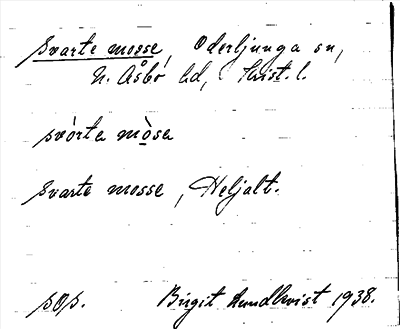 Svarte mosse, Oderljunga sn,
N. Åsbo hd, Krist. l.
svòrta mòsa
Svarte mosse, Heljalt.
sop. Birgit Lundkvist 1938.